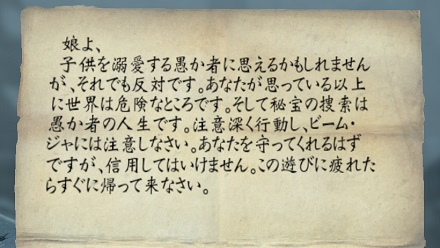 娘よ、
子供を溺愛する愚か者に思えるかもしれません
が、それでも反対です。あなたが思っている以上
に世界は危険なところです。そして秘宝の捜索は
愚か者の人生です。注意深く行動し、ビーム・
ジャには注意しなさい。あなたを守ってくれるはず
ですが、信用してはいけません。この遊びに疲れた
らすぐに帰って来なさい。